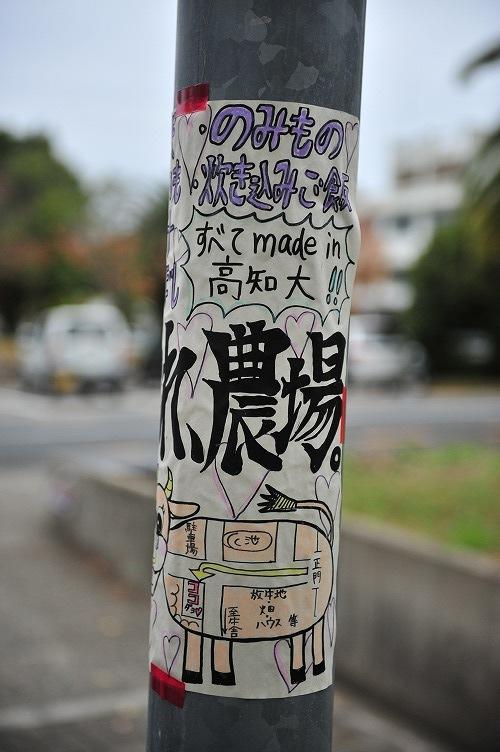 ・のみもの
・炊き込みご飯
すべて made in
高知大!!
れ、農場。
駐車場
池
正門
ココ
ダヨ
放牧地
・畑・
ハウス 等
至牛舎